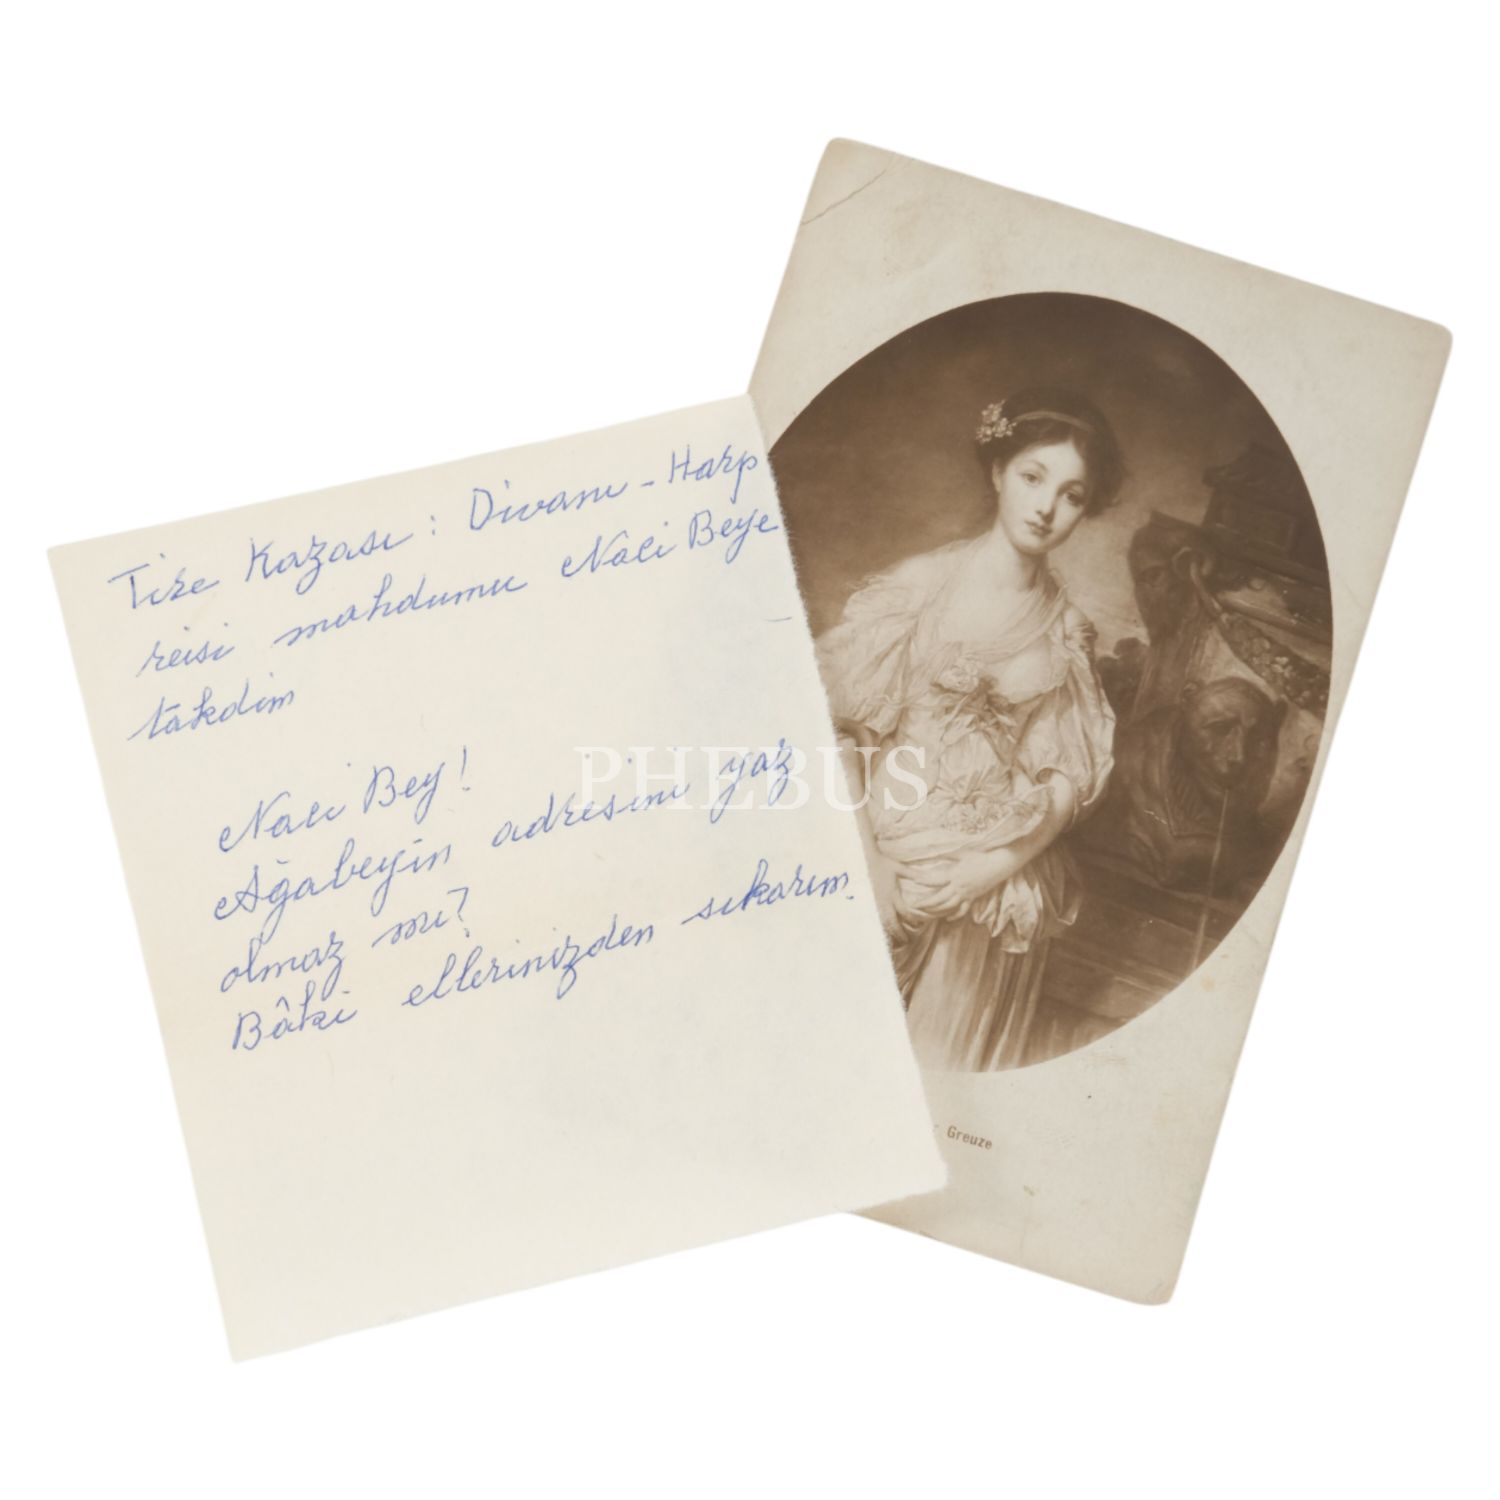 Tire Kazası: Divanı-Harp
reisi mahdumu Naci Beye
takdim
Naci Bey!
Ağabeyin adresini yaz
olmaz mı?
Bâki ellerinizden sıkarım.
PHEBUS
Greuze